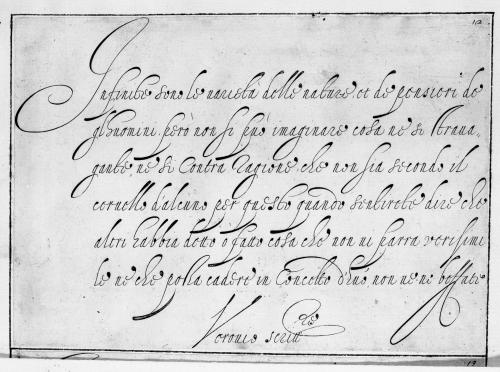 12
Infinite sono le varietà delle nature, et de pensieri de
gl'huomini però non si può imaginare cosa ne si strava-
gante, ne si contra Ragione che non sia secondo il
cervello d'alcuno per questo quando sentirete dire che
altri habbia detto ò fatto cosa che non vi parra verisimi
le ne che possa cadere in Concetto d'huo. non ve ne beffate
scritt
13